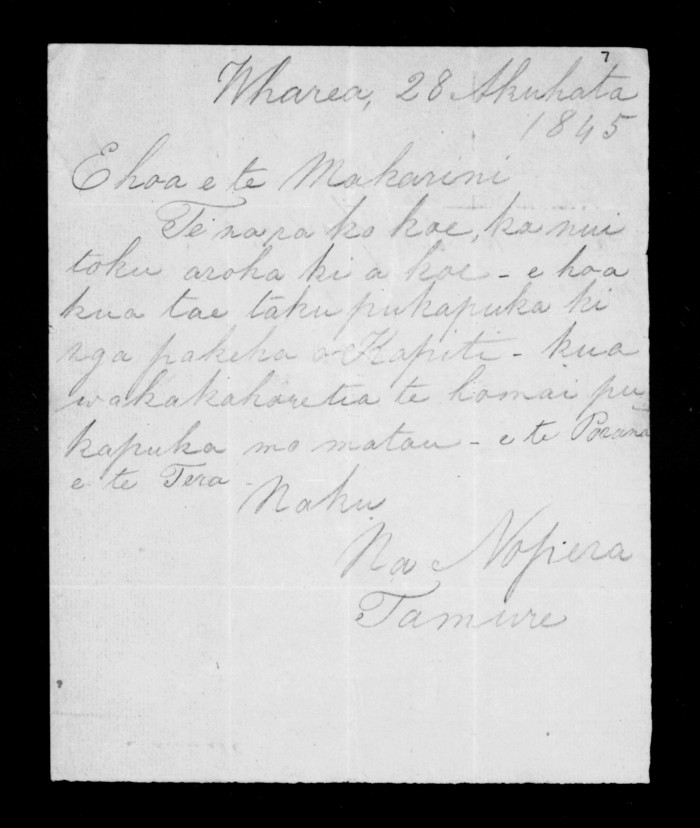 7
Wharea, 28 Akuhata
1845
E hoa e te Makarini
Tena ra ko koe, ka nui
toku aroha ki a koe - e hoa
kua tae taku pukapuka ki
nga pakeha o Kapiti - kua
wakakahoretia te homai pu
kapuka mo matau - e te Porana
e te Tera -
Naku
Na Nopera
Tamure